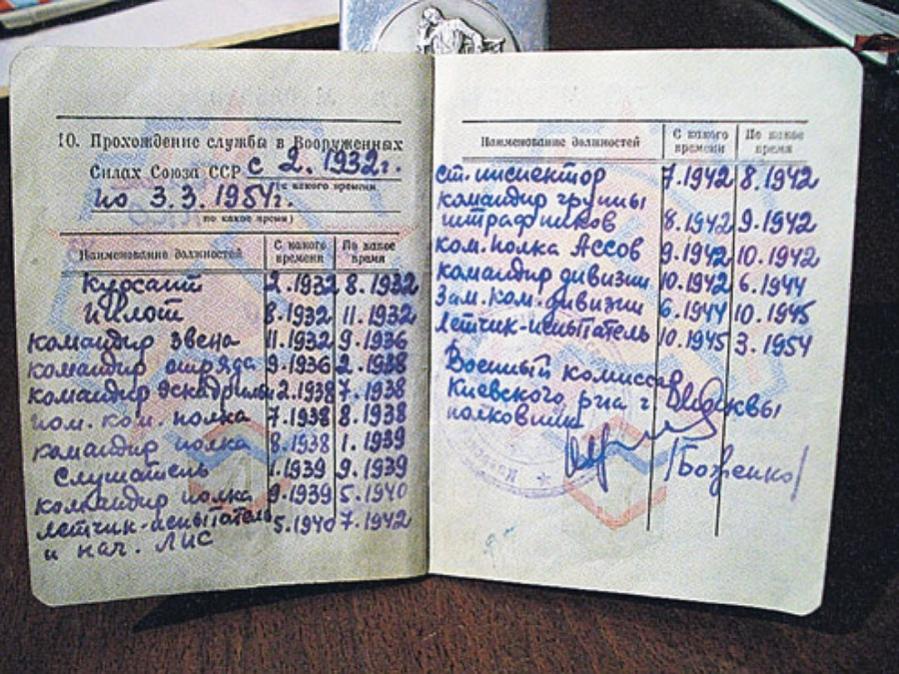 10. Прохождение службы в Вооруженных
Силах Союза ССР с 2.1932г.
(с какого времени
по 3.3.1954г.
по какое время)
Наименование должностей С какого времени По какое время
Курсант 2.1932 8.1932
Пилот 8.1932 11.1932
командир звена 11.1932 9.1936
командир отряда 9.1936 2.1938
командир эскадрильи 2.1938 7.1938
пом. ком. полка 7.1938 8.1938
командир полка 8.1938 1.1939
Слушатель 1.1939 9.1939
командир полка 9.1939 5.1940
летчик-испытатель 5.1940 7.1942
и нач. ЛИС
Наименование должностей С какого времени По какое время
ст. инспектор 7.1942 8.1942
командир группы
штрафников 8.1942 9.1942
ком. полка Ассов 9.1942 10.1942
командир дивизии 10.1942 6.1944
Зам. ком. дивизии 6.1944 10.1945
Летчик-испытатель 10.1945 3.1954
Военный комиссар
Киевского р-на г.
полковник
/Боженко/